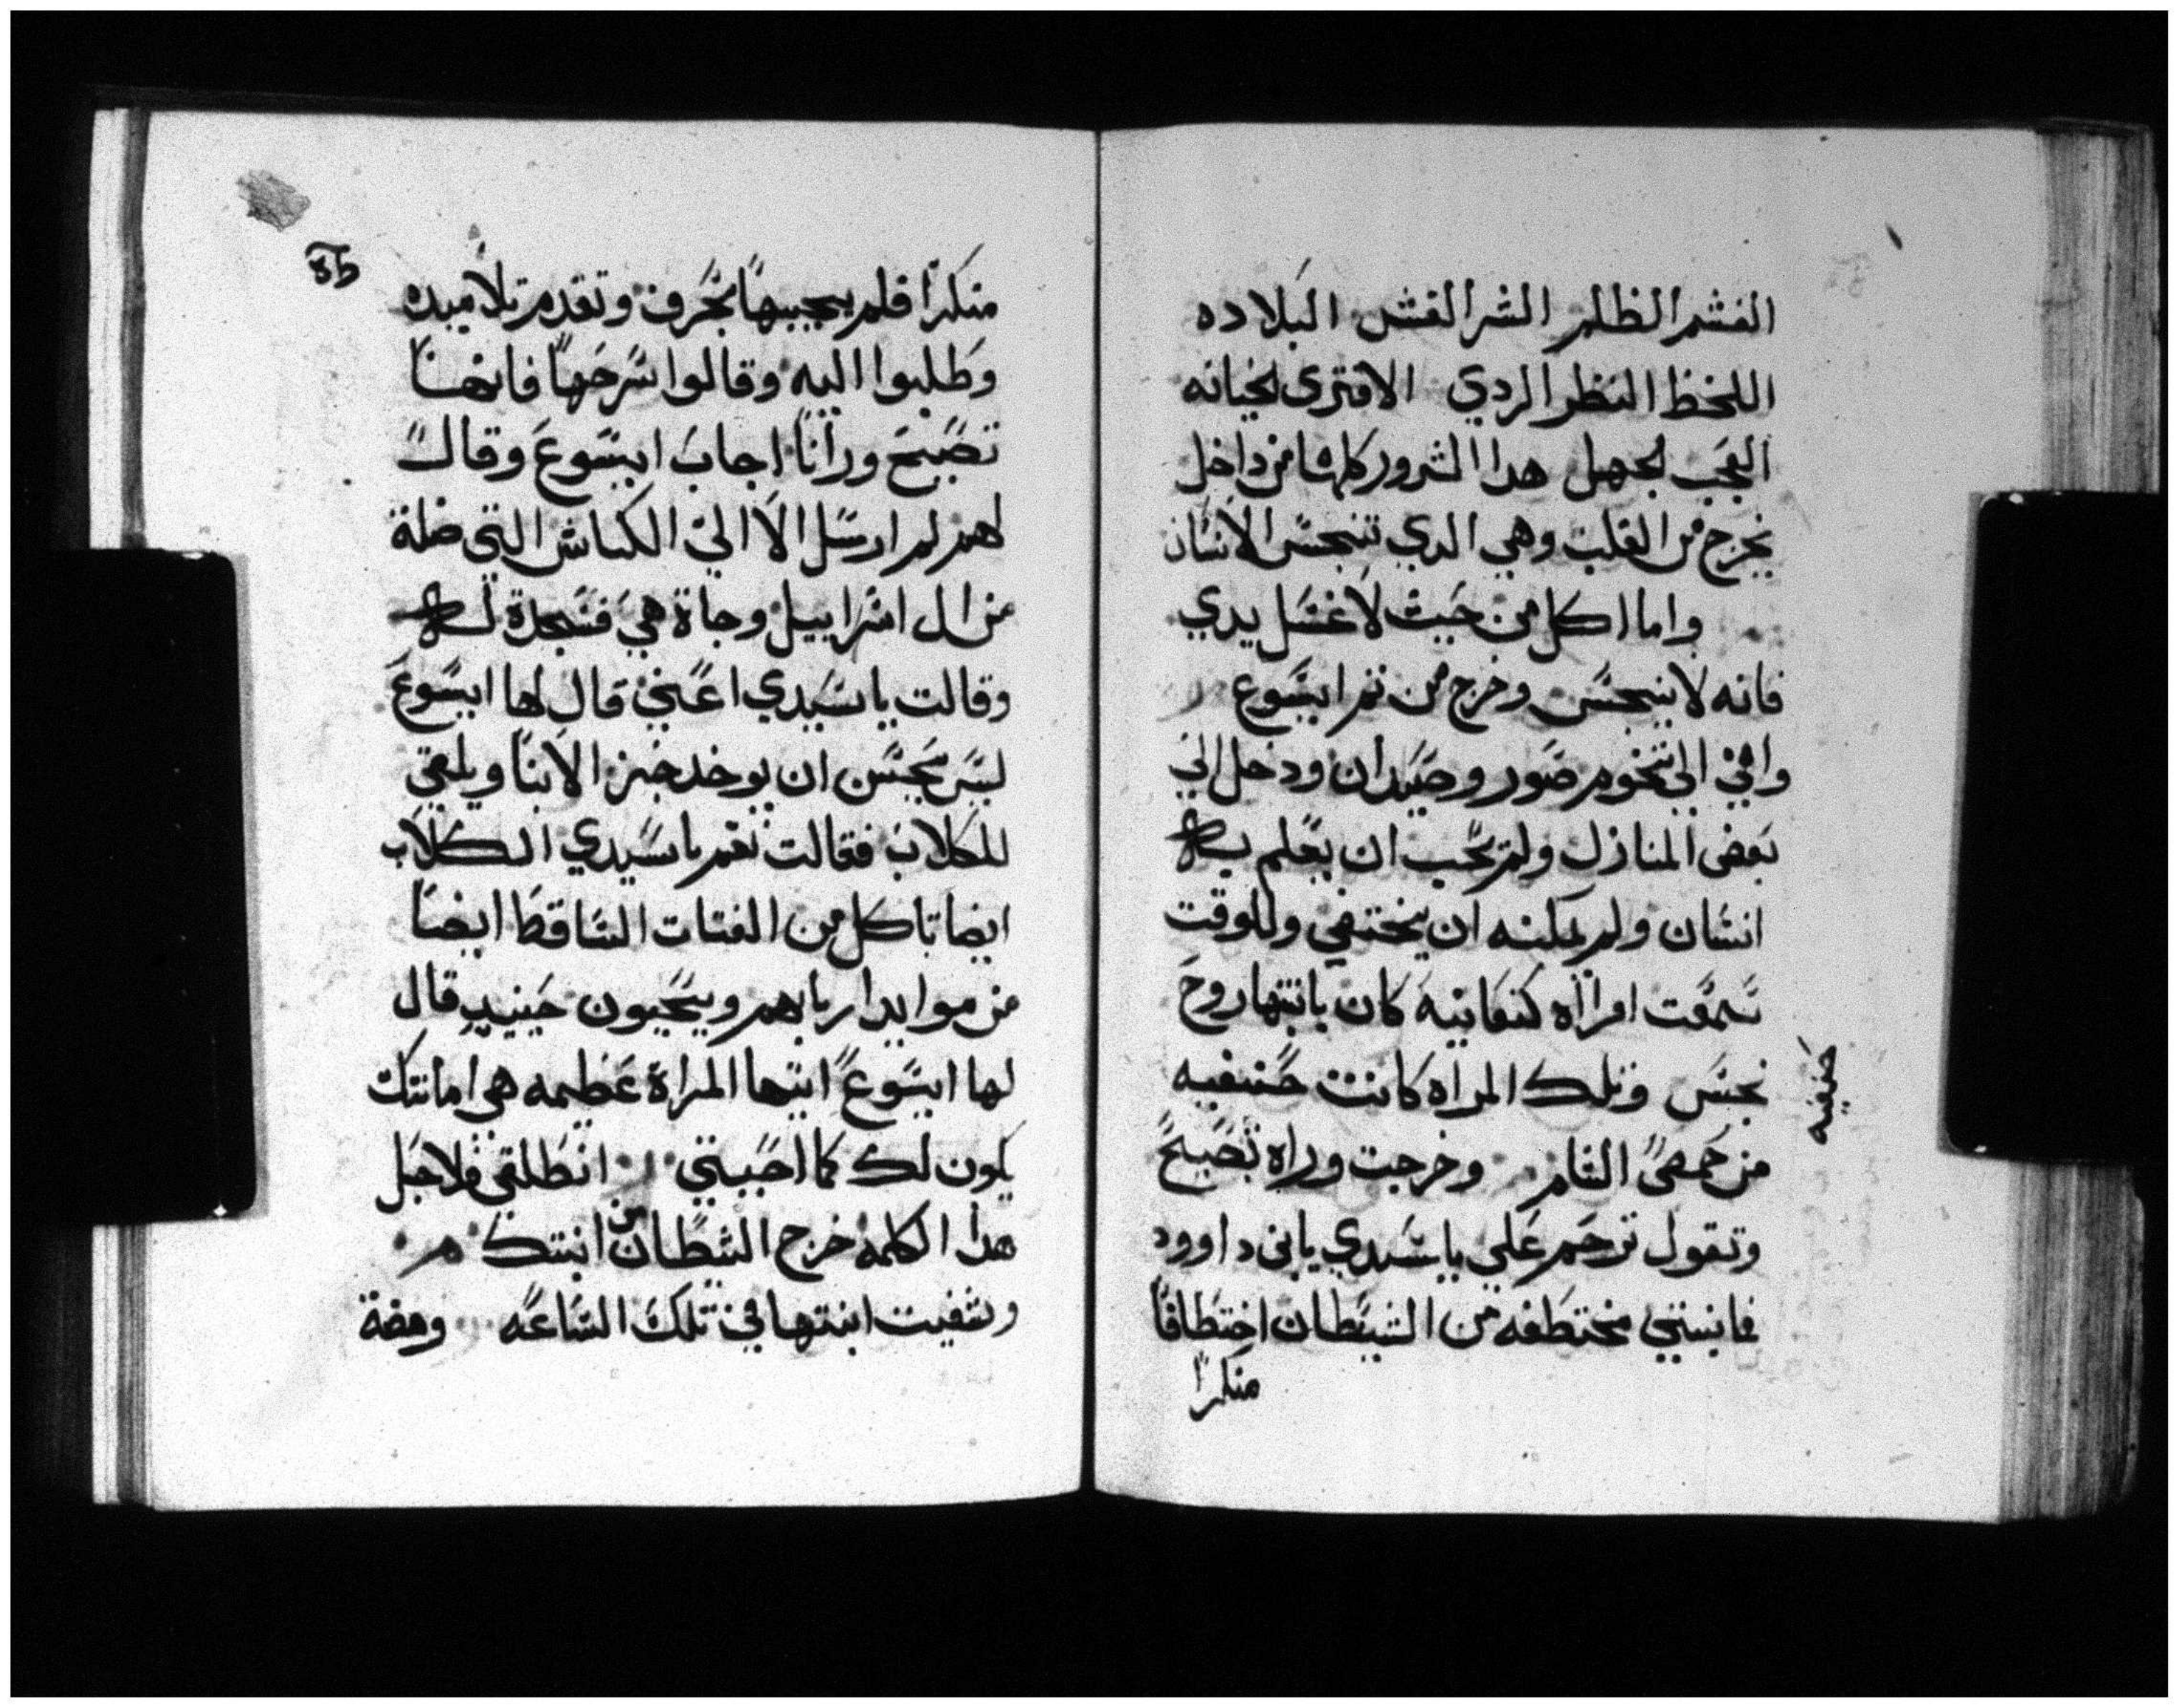 الغشم الظلم الشر الغش البلاده
اللحظ النظر الردي الافترى الخيانه
العجب الجهل هدا الشرور كلها من داخل
يخرج من القلب وهي الدي تنجس الانسان
واما اكل من حيث لا غسل يدي
فانه لا ينجس وخرج من تم ايسوع
واتى الى تخوم صور وصيدان ودخل الى
بعض المنازل ولم يحب ان يعلم به
انسان ولم يمكنه ان يختفي وللوقت
سمعت امراه كنعانيه كان بابنتها روح
نجس وتلك المراه كانت حنيفيه
حنيفيه
من حمص الشام وخرجت وراه تصيح
وتقول ترحم علي يا سيدي يابن داوود
فابنتي مختطفه من الشيطان اختطافا
منكرا
منكرا فلم يجيبها بحرف وتقدم تلاميده
وطلبوا اليه وقالوا سرحها فانها
تصيح ورانا اجاب ايسوع وقال
لهم لم ارسل الا الى الكباش التي ضلة
من ال اسراييل وجاة هي فسجدة له
وقالت يا سيدي اعني قال لها ايسوع
ليس يحسن ان يوخد خبز الابنا ويلقى
للكلاب فقالت نعم يا سيدي الكلاب
ايضا تاكل من الفتات الساقط ايضا
من موايد اربابهم ويحيون حينيد قال
لها ايسوع ايتها المراة عظيمه هي امانتك
يكون لك كما احببتي انطلقي فلاجل
هدا الكلمه خرج الشطان من ابنتك
وشفيت ابنتها في تلك الساعه ومضة